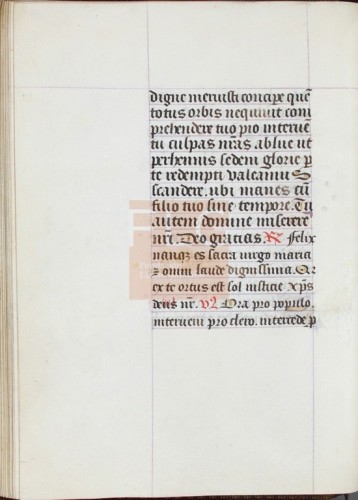 digne meruisti concipe quē
totus orbis nequiuit com
prehendere tuo pio interuē
tu culpas nr̄as ablue ut
perhennis sedem glorie p
te redempti valeamus S
scandere. ubi manes cū
filio tuo sine tempore. Tu
autem domine miserere
nr̄i. Deo gracias. R̄ Felix
nanq̄ es sacra uirgo maria
⁊ omni laude dignissima Q̄r
ex te ortus est sol iusticie xp̄s
deus nr̄. V̄ Ora pro populo.
interueni pro clero. intercede p